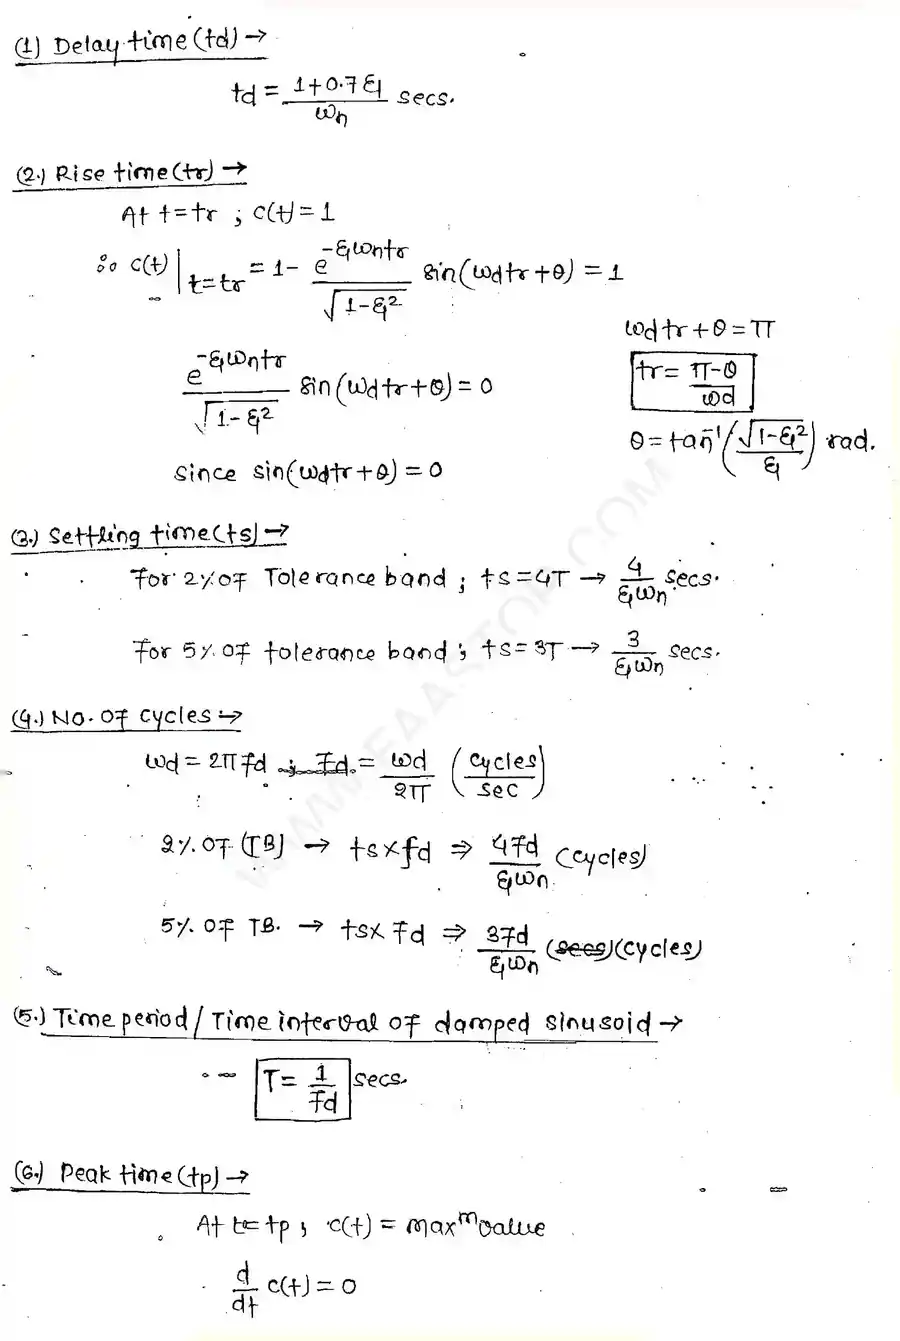 (1) Delay time (td) →
td = (1+0.7ξ)/ωn secs.
(2.) Rise time (tr) →
At t=tr ; c(t) = 1
∴ c(t)|t=tr = 1 - e^(-ξωntr)/√(1-ξ²) sin(ωdtr+θ) = 1
e^(-ξωntr)/√(1-ξ²) sin(ωdtr+θ) = 0
since sin(ωdtr+θ) = 0
ωdtr+θ = π
tr = (π-θ)/ωd
θ = tan⁻¹(√(1-ξ²)/ξ) rad.
(3.) Settling time (ts) →
For 2% of Tolerance band ; ts = 4T → 4/ξωn secs.
For 5% of tolerance band ; ts = 3T → 3/ξωn secs.
(4.) No. of cycles →
ωd = 2πfd ; fd = ωd/2π (cycles/sec)
2% of (TB) → ts×fd ⇒ 4fd/ξωn (cycles)
5% of TB. → ts×fd ⇒ 3fd/ξωn (secs) (cycles)
(5.) Time period / Time interval of damped sinusoid →
T = 1/fd secs.
(6.) Peak time (tp) →
At t = tp ; c(t) = maxᵐ value
d/dt c(t) = 0